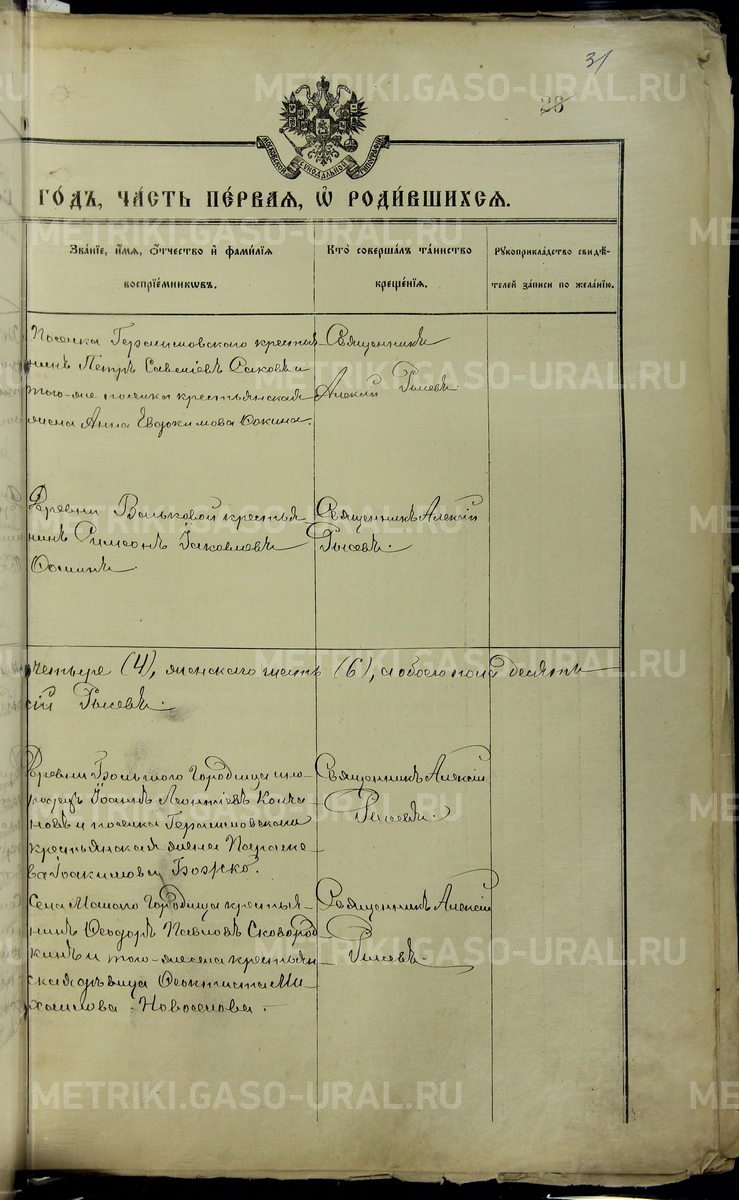 31
28
МОСКОВСКОЙ СѴНОДАЛЬНОЙ ТИПОГРАФІИ
ГО́ДЪ, ЧА́СТЬ ПЕ́РВАЯ, Ѡ҆ РОДИ́ВШИХСЯ.
Зва́ніе, и҆́мя, ѻ҆́тчество и҆ фами́лія
воспріе́мникѡвъ.
Кто̀ соверша́лъ та́инство
креще́нія.
Рꙋкоприкла́дство свидѣ́-
телей за́писи по жела́нію.
Поселка Герасимовскаго крестья-
нинъ Петръ Савелiевъ и
того-же поселка крестьянская
жена Анна Евдокимова
Священникъ
Алексiй Рысевъ.
Деревни Вальковой крестья-
нинъ Симеонъ Iаковлевъ
Ѳоминъ.
Священникъ Алексiй
Рысевъ.
четыре (4), женскаго шесть (6), а обоего пола десять
сiй Рысевъ.
Деревни Большого Городища ино-
родецъ Iоаннъ Леонтiевъ
и поселка Герасимовскаго
крестьянская жена Параске-
ва Iоакимова Божко.
Священникъ Алексiй
Рысевъ.
Села Малаго Городища крестья-
нинъ Ѳеодоръ Павловъ Сковород-
кинъ и того-же села крестьян-
ская дѣвица Ѳеоктиста Ми-
хаилова Новоселова.
Священникъ Алексiй
Рысевъ.
METRIKI.GASO-URAL.RU